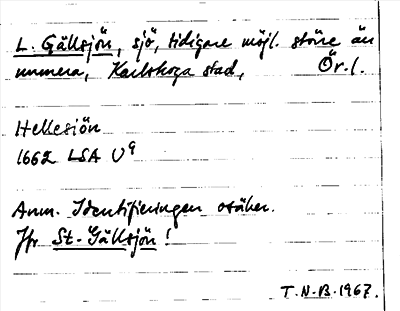 L. Gällsjön, sjö, tidigare möjl. större än
numera, Karlskoga stad, Ör.l.
Hellesiön
1662 LSA U⁹
Anm. Identifieringen osäker.
Jfr St. Gällsjön!
T.N.B. 1967.